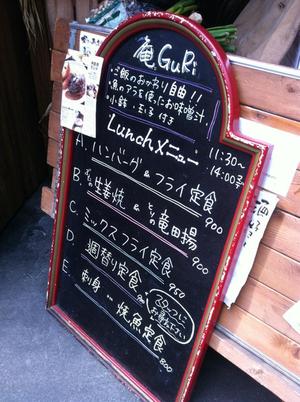 庵GuRi
・ご飯のおかわり自由!!
・魚のアラを使ったお味噌汁
・小鉢・玉子付き
Lunchメニュー 11:30~14:00
A. ハンバーグ & フライ定食 900
B. ぶたの生姜焼 & とりの竜田揚 900
C. ミックスフライ定食 900
D. 週替り定食 950
E. 刺身 or 焼魚定食 800